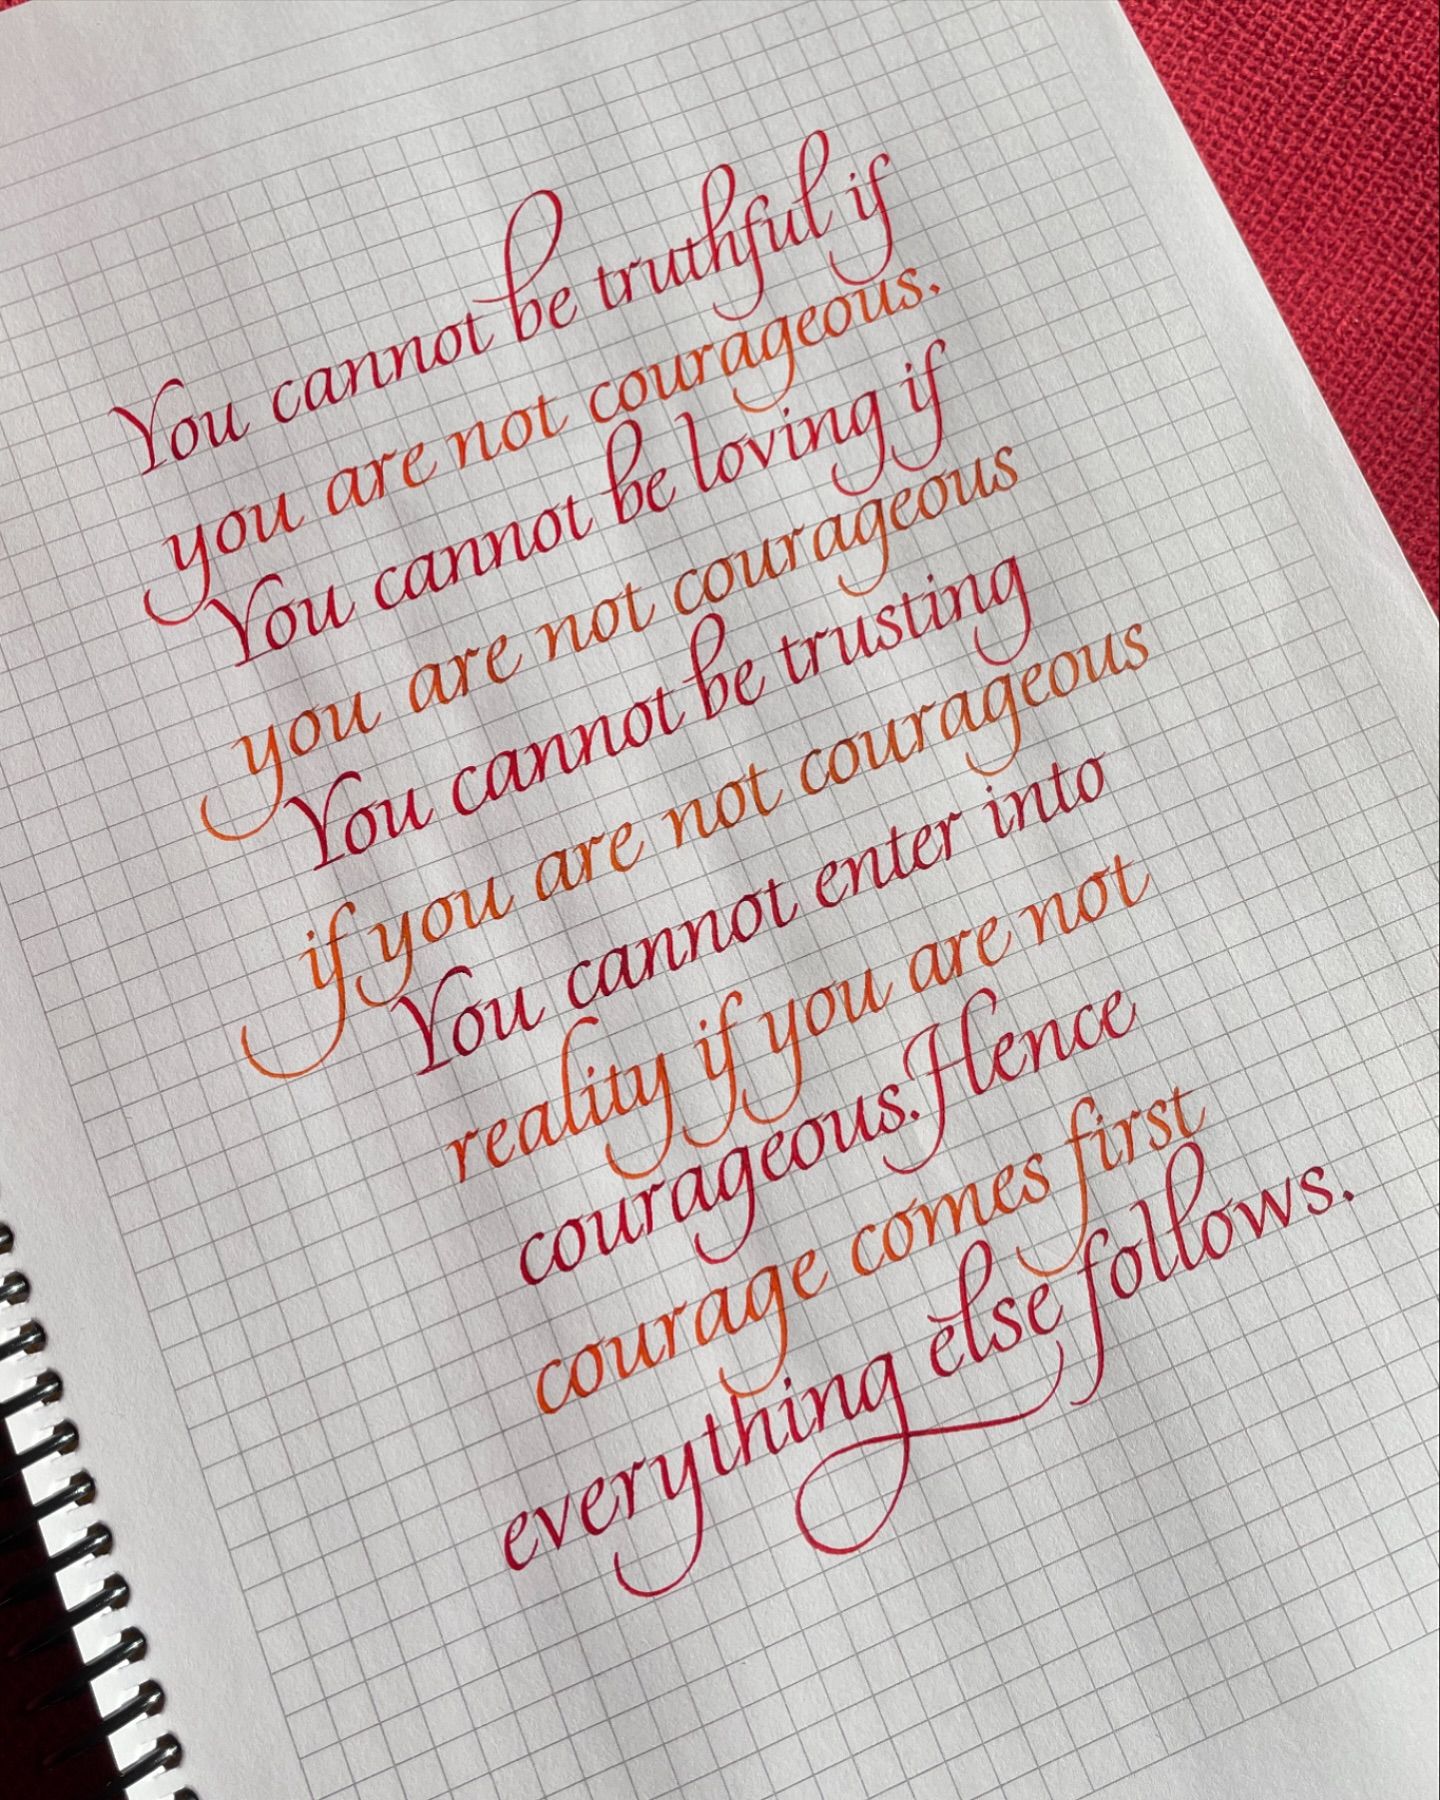 You cannot be truthful if
you are not courageous.
You cannot be loving if
you are not courageous
You cannot be trusting
if you are not courageous
You cannot enter into
reality if you are not
courageous. Hence
courage comes first
everything else follows.